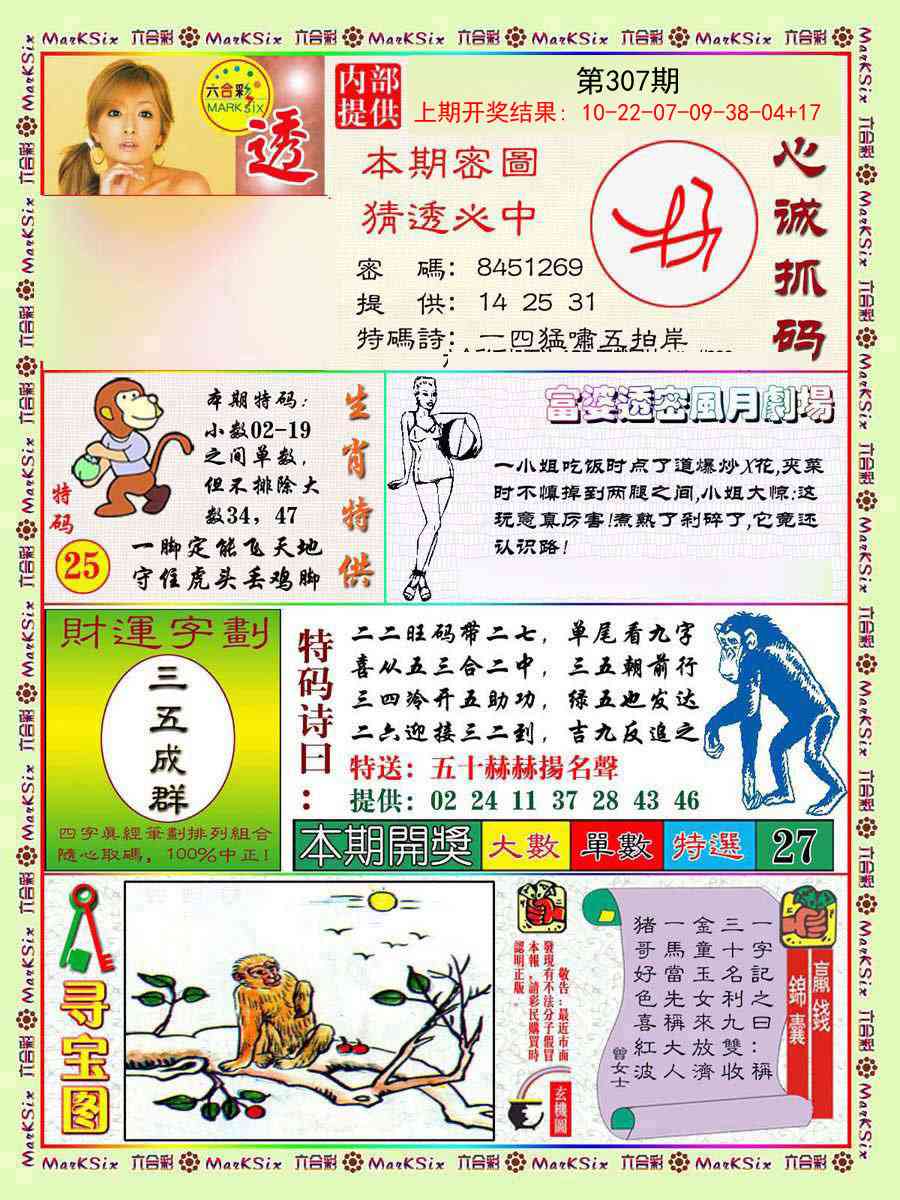 MarKSix 六合彩 MarKSix 六合彩 MarKSix 六合彩 MarKSix 六合彩 MarKSix 六合彩
六合彩
MARK SIX
透
内部
提供
第307期
上期开奖结果：10-22-07-09-38-04+17
本期密圖
猜透必中
密 碼：8451269
提 供：14 25 31
特碼詩：一四猛嘯五拍岸
心诚抓码
特码
25
本期特码：
小数02-19
之间单数，
但不排除大
数34，47
一脚定能飞天地
守住虎头丢鸡脚
生肖特供
富婆透密風月劇場
一小姐吃饭时点了道爆炒X花,夹菜
时不慎掉到两腿之间,小姐大惊:这
玩意真厉害!煮熟了剁碎了,它竟还
认识路!
財運字劃
三五成群
四字真經筆劃排列組合
隨心取碼，100%中正!
特码诗曰：
二二旺码带二七，单尾看九字
喜从五三合二中，三五朝前行
三四冷开五助功，绿五也发达
二六迎接三二到，吉九反追之
特送：五十赫赫揚名聲
提供：02 24 11 37 28 43 46
本期開獎 大數 單數 特選 27
寻宝图
敬告：最近市面
發現有不法分子假冒
本報，請彩民購買時
認明正版。
玄機圖
贏錢
錦囊
一字記之曰：稱
三十名利九雙收
金童玉女來放濟
一馬當先稱大人
猪哥好色喜紅波
曾女士
MarKSix 六合彩 MarKSix 六合彩 MarKSix 六合彩 MarKSix 六合彩 MarKSix 六合彩